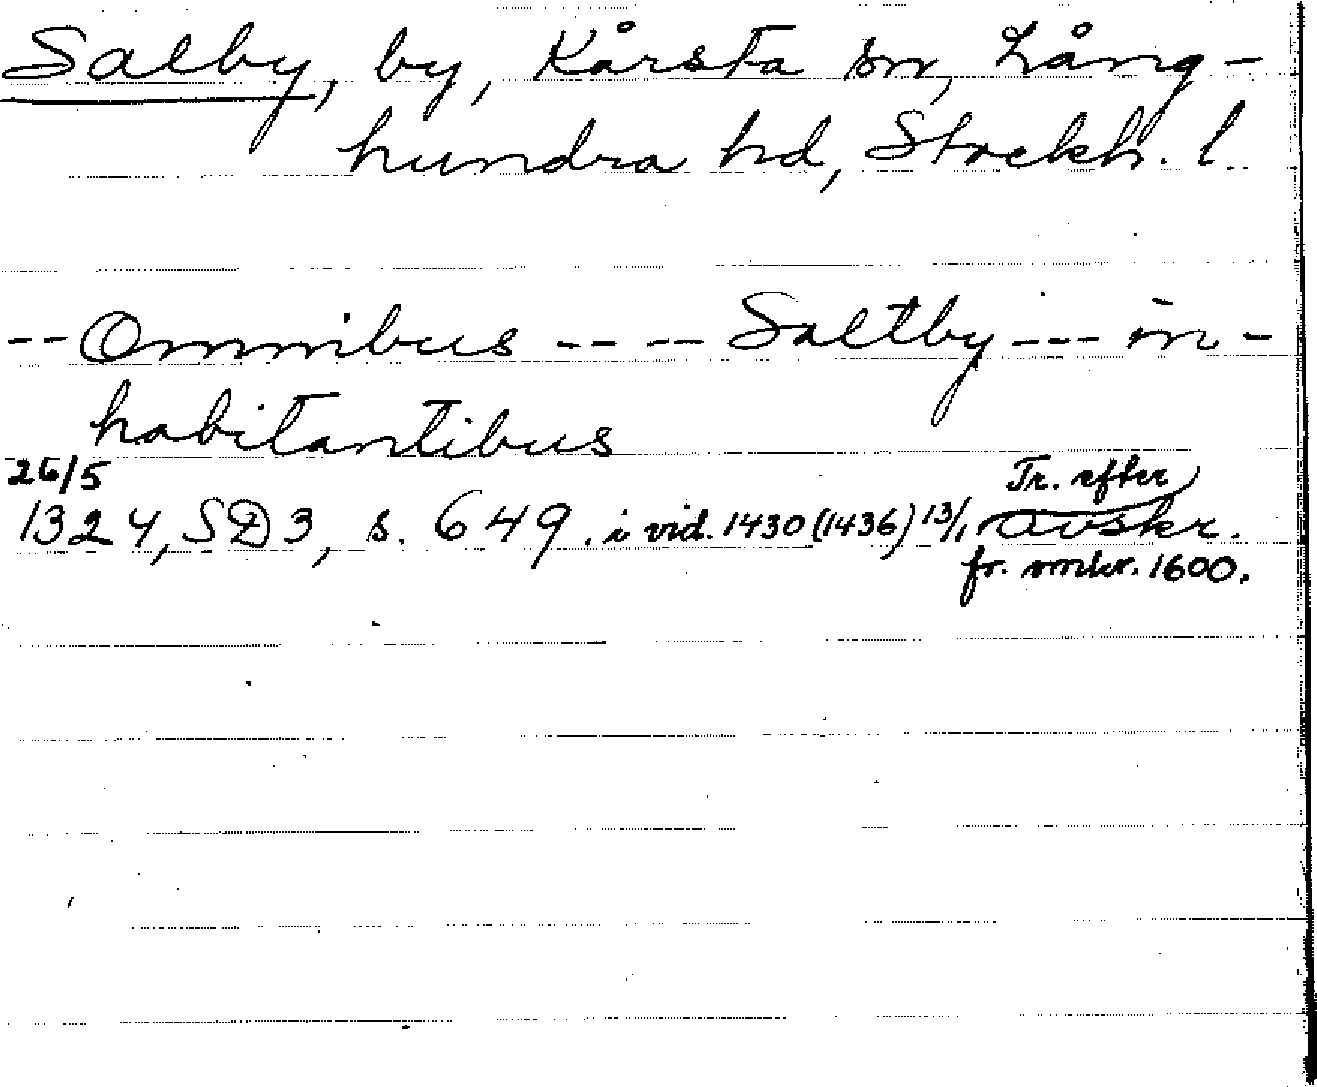 Salby, by, Kårsta sn, Lång-
hundra hd, Stockh. l.
-- Omnibus -- -- Saltby --- in-
habitantibus
26/5
1324, SD3, s. 649. i vid. 1430 (1436) 13/1 Tr. efter avskr.
fr. omkr. 1600.